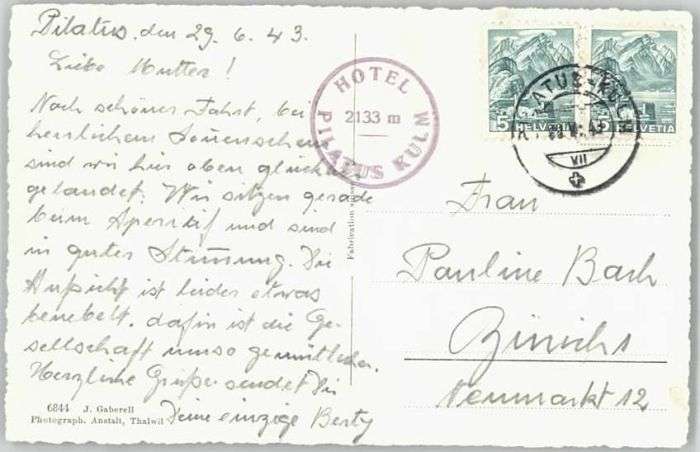 Pilatus, den 29. 6. 43.
Liebe Mutter!
Nach schöner Fahrt, bei
herrlichem Sonnenschein
sind wir hier oben glücklich
gelandet. Wir sitzen gerade
beim Aperitif und sind
in guter Stimmung. Die
Aussicht ist leider etwas
benebelt, dafür ist die Ge-
sellschaft umso gemütlicher.
Herzliche Grüsse sendet Dir
Deine einzige Berty
6844 J. Gaberell
Photograph. Anstalt, Thalwil
Fabrication
HOTEL
2133 m
PILATUS KULM
5 HELVETIA
5 HELVETIA
PILATUS-KULM
VII
Frau
Pauline Bach
Zürich 1
Neumarkt 12